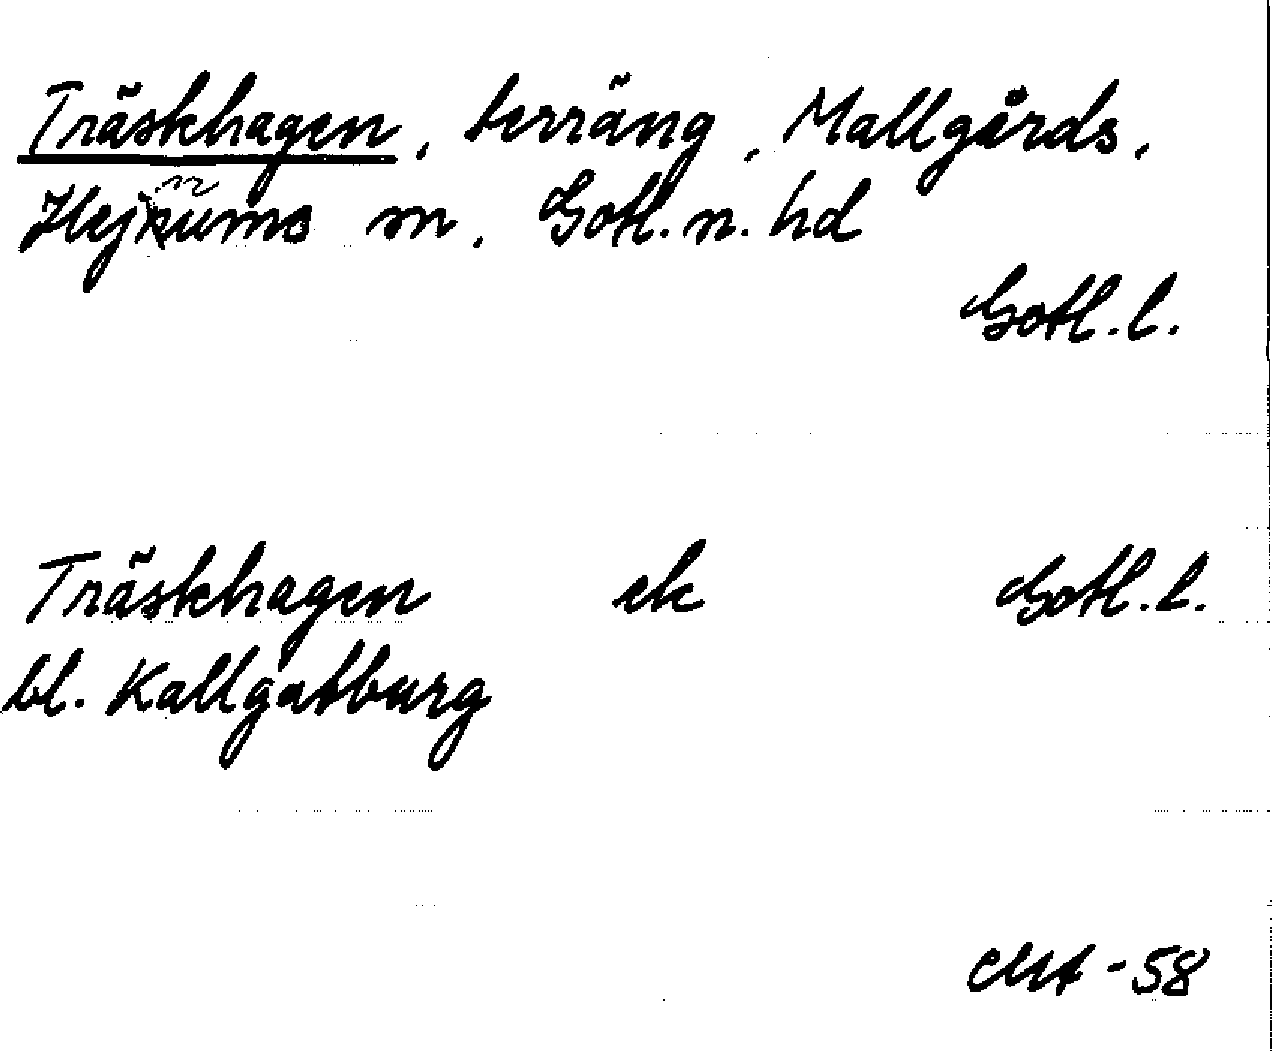 Träskhagen, terräng, Mallgårds,
Hejnums sn, Gotl. n. hd
Gotl. l.
Träskhagen ek Gotl. l.
bl. Kallgatburg
-58